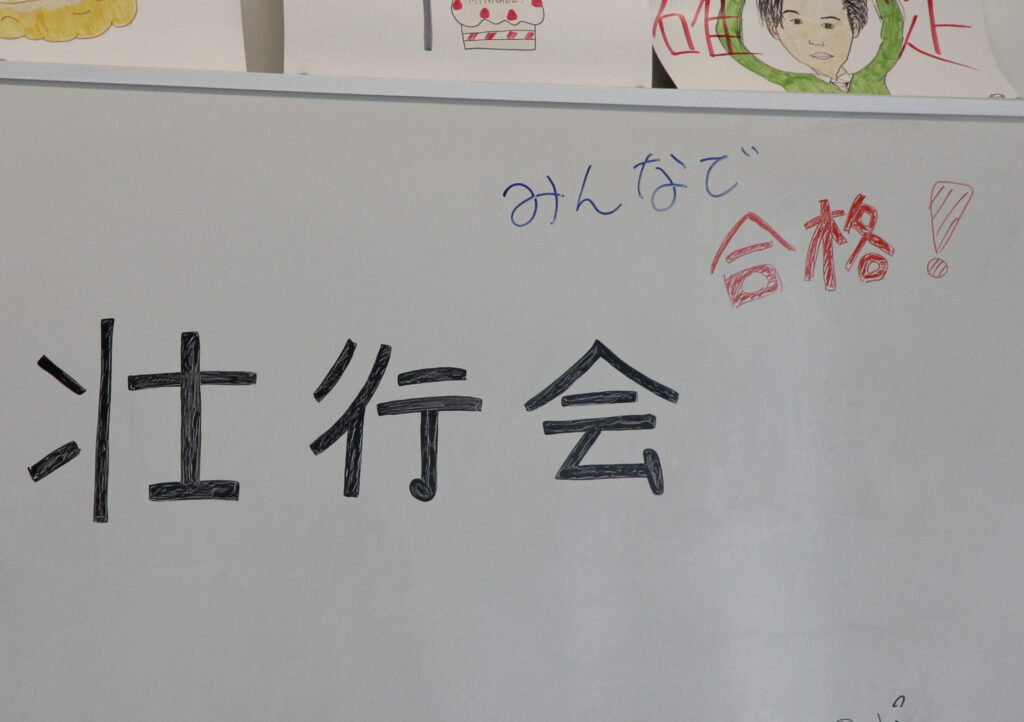 確定
みんなで
合格!
壮行会